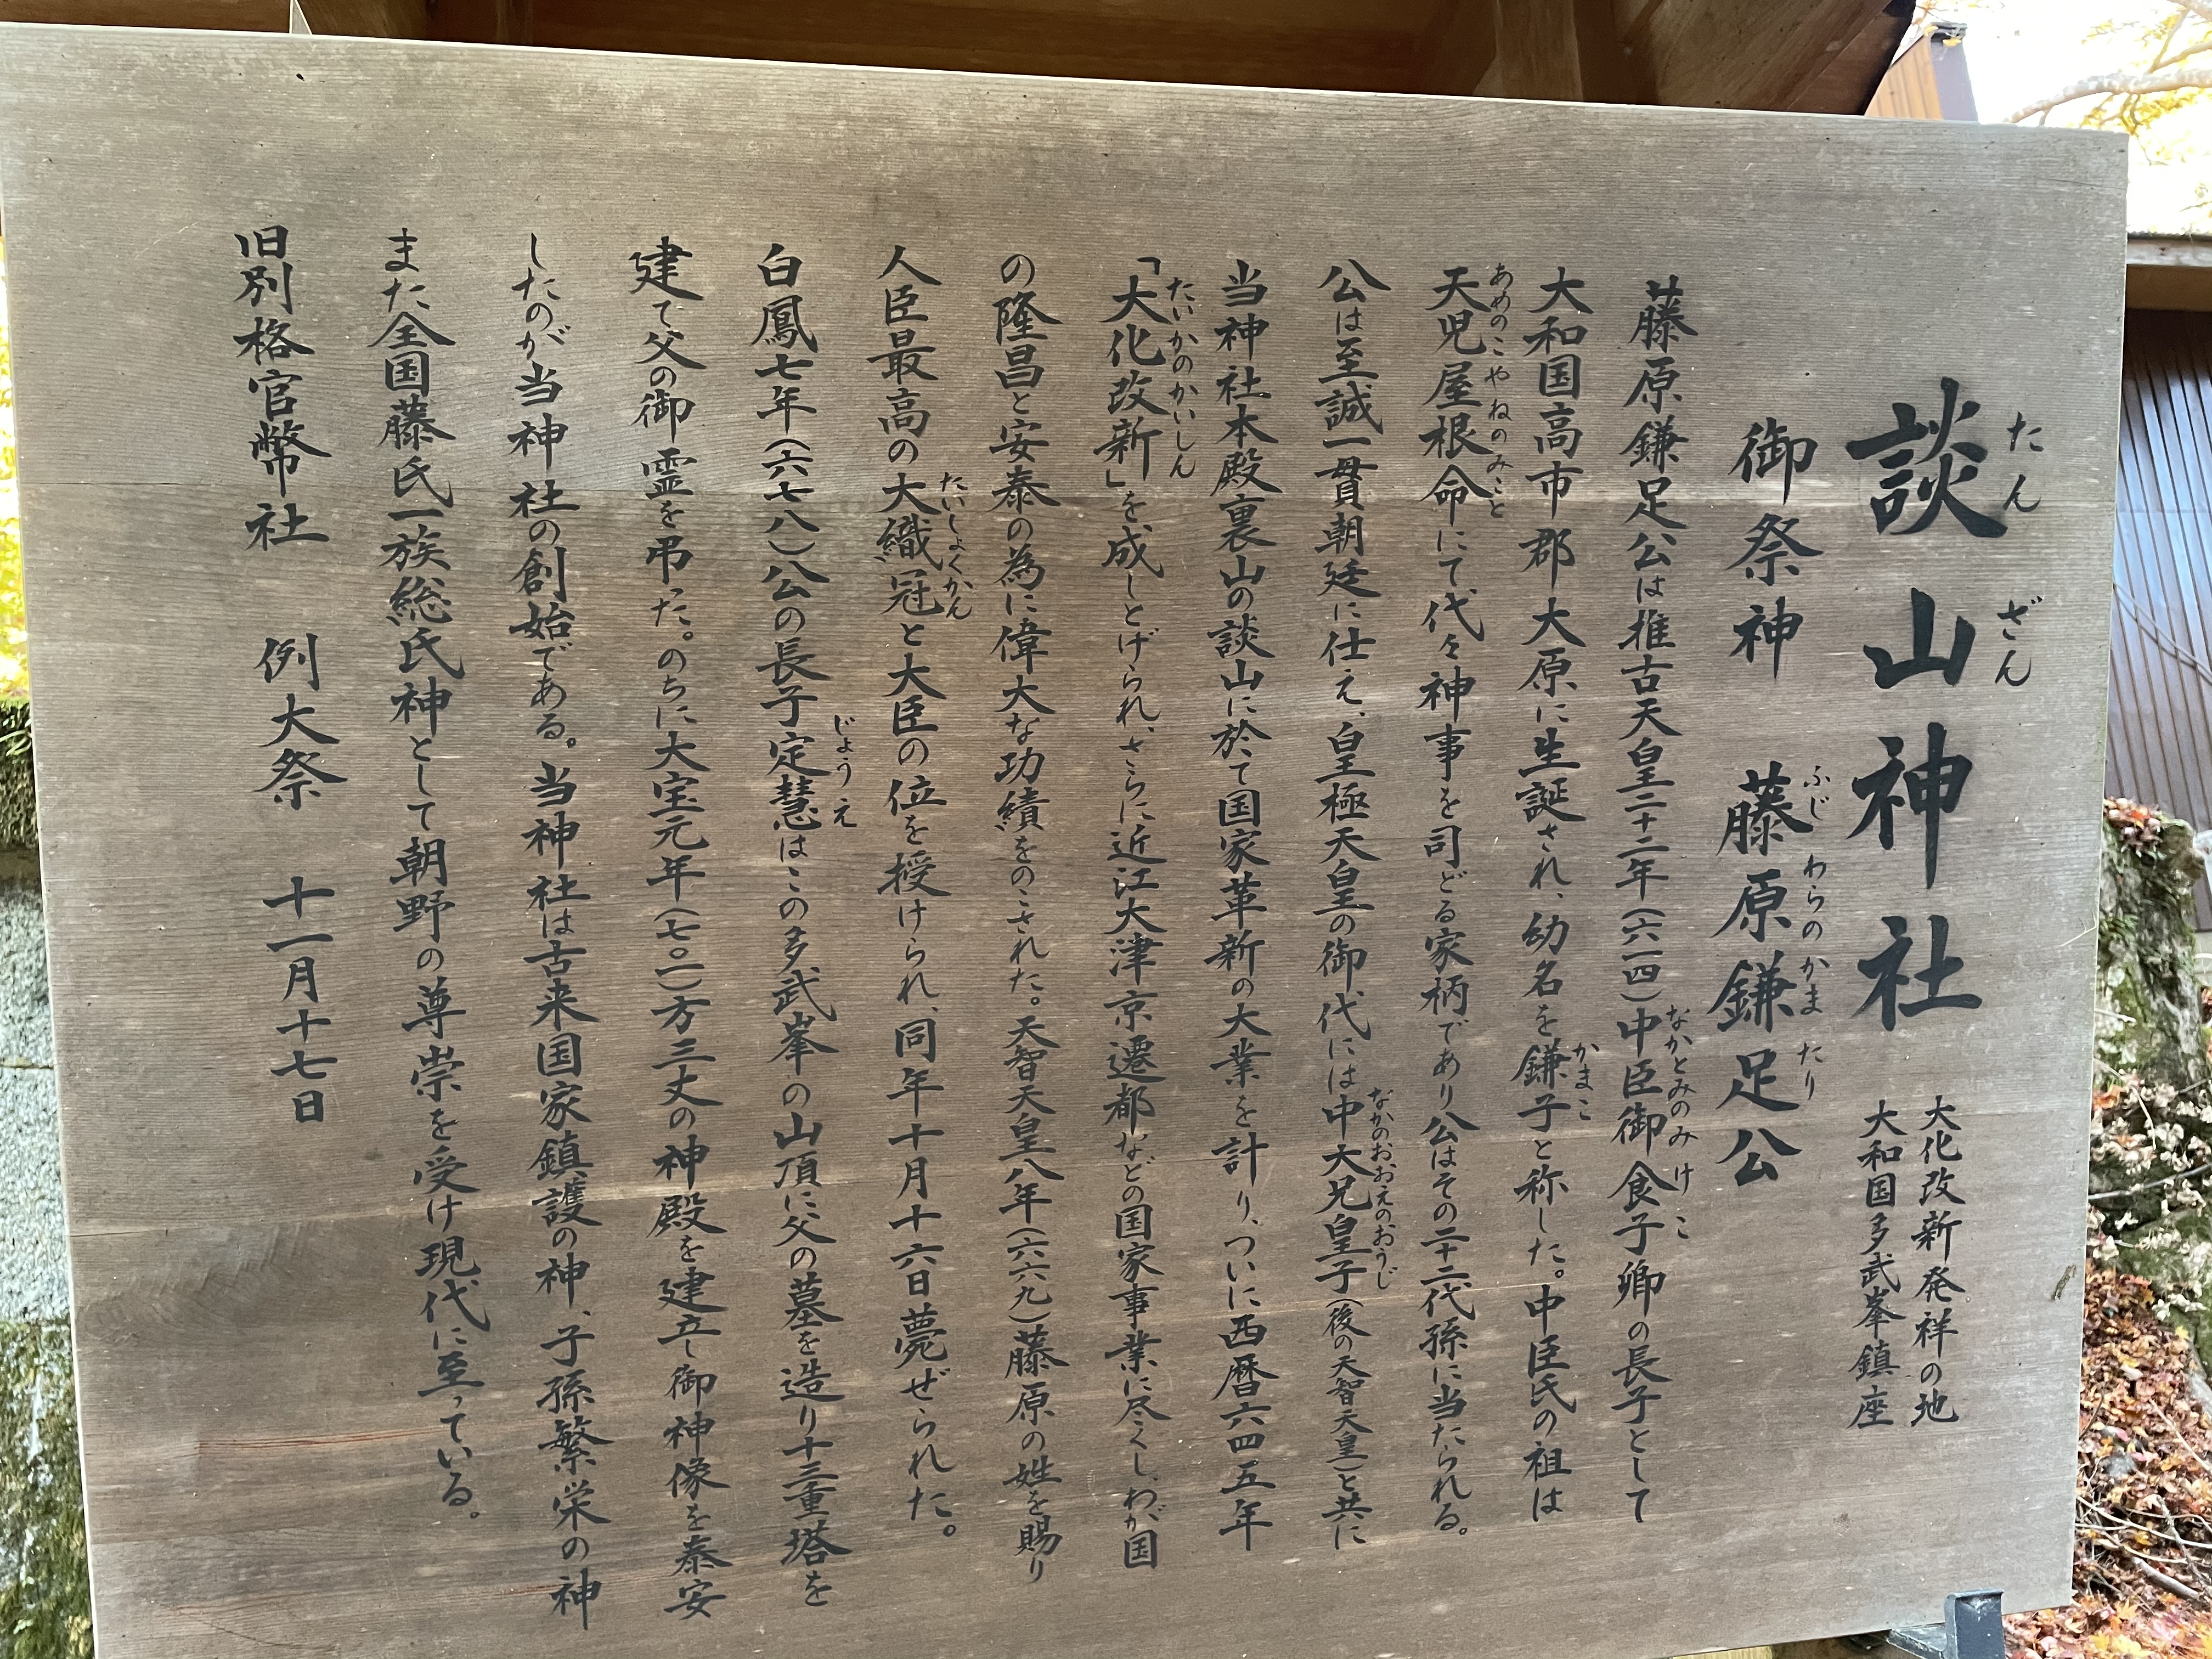 談山神社
たんざん
大化改新発祥の地
大和国多武峯鎮座
御祭神 藤原鎌足公
ふじわらのかまたり
藤原鎌足公は推古天皇二十二年(六一四)中臣御食子卿の長子として
なかとみのみけこ
大和国高市郡大原に生誕され、幼名を鎌子と称した。中臣氏の祖は
かまこ
天児屋根命にて代々神事を司どる家柄であり公はその二十二代孫に当たられる。
あめのこやねのみこと
公は至誠一貫朝廷に仕え、皇極天皇の御代には中大兄皇子(後の天智天皇)と共に
なかのおおえのおうじ
当神社本殿裏山の談山に於て国家革新の大業を計り、ついに西暦六四五年
「大化改新」を成しとげられ、さらに近江大津京遷都などの国家事業に尽くし、わが国
たいかのかいしん
の隆昌と安泰の為に偉大な功績をのこされた。天智天皇八年(六六九)藤原の姓を賜り
人臣最高の大織冠と大臣の位を授けられ、同年十月十六日薨ぜられた。
たいしょくかん
白鳳七年(六七八)公の長子定慧はこの多武峯の山頂に父の墓を造り十三重塔を
じょうえ
建て父の御霊を弔った。のちに大宝元年(七〇一)方三丈の神殿を建立し御神像を泰安
したのが当神社の創始である。当神社は古来国家鎮護の神、子孫繁栄の神
また全国藤氏一族総氏神として朝野の尊崇を受け現代に至っている。
旧別格官幣社 例大祭 十一月十七日